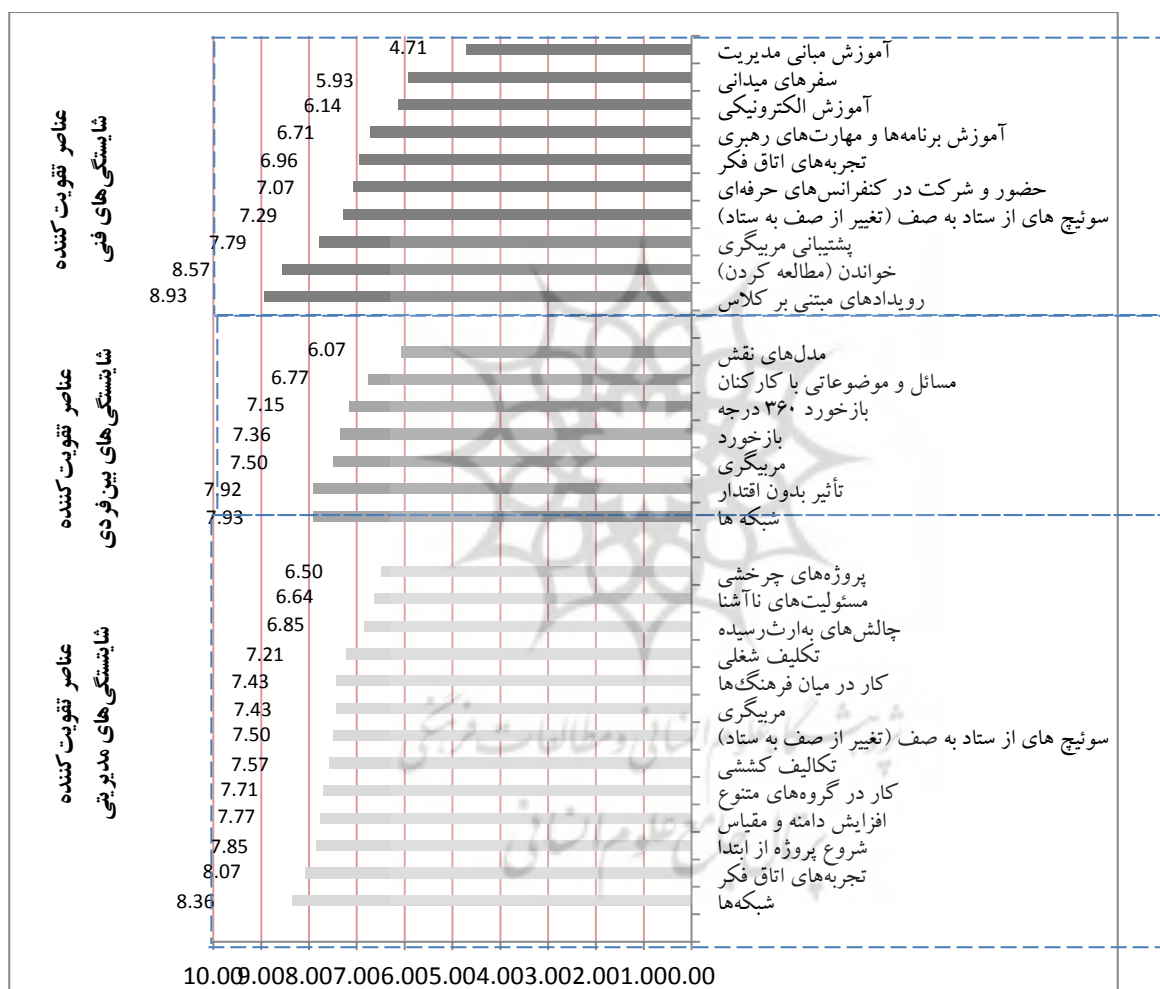 عناصر تقویت کننده
شایستگی‌های فنی
آموزش مبانی مدیریت 4.71
سفرهای میدانی 5.93
آموزش الکترونیکی 6.14
آموزش برنامه‌ها و مهارت‌های رهبری 6.71
تجربه‌های اتاق فکر 6.96
حضور و شرکت در کنفرانس‌های حرفه‌ای 7.07
سوئیچ های از ستاد به صف (تغییر از صف به ستاد) 7.29
پشتیبانی مربیگری 7.79
خواندن (مطالعه کردن) 8.57
رویدادهای مبتنی بر کلاس 8.93
عناصر تقویت کننده
شایستگی‌های بین‌فردی
مدل‌های نقش 6.07
مسائل و موضوعاتی با کارکنان 6.77
بازخورد ۳۶۰ درجه 7.15
بازخورد 7.36
مربیگری 7.50
تأثیر بدون اقتدار 7.92
شبکه ها 7.93
عناصر تقویت کننده
شایستگی‌های مدیریتی
پروژه‌های چرخشی 6.50
مسئولیت‌های ناآشنا 6.64
چالش‌های به‌ارث‌رسیده 6.85
تکلیف شغلی 7.21
کار در میان فرهنگ‌ها 7.43
مربیگری 7.43
سوئیچ های از ستاد به صف (تغییر از صف به ستاد) 7.50
تکالیف کششی 7.57
کار در گروه‌های متنوع 7.71
افزایش دامنه و مقیاس 7.77
شروع پروژه از ابتدا 7.85
تجربه‌های اتاق فکر 8.07
شبکه‌ها 8.36
10.00 9.00 8.00 7.00 6.00 5.00 4.00 3.00 2.00 1.00 0.00
پژوهشگاه علوم انسانی و مطالعات فرهنگی
پرتال جامع علوم انسانی